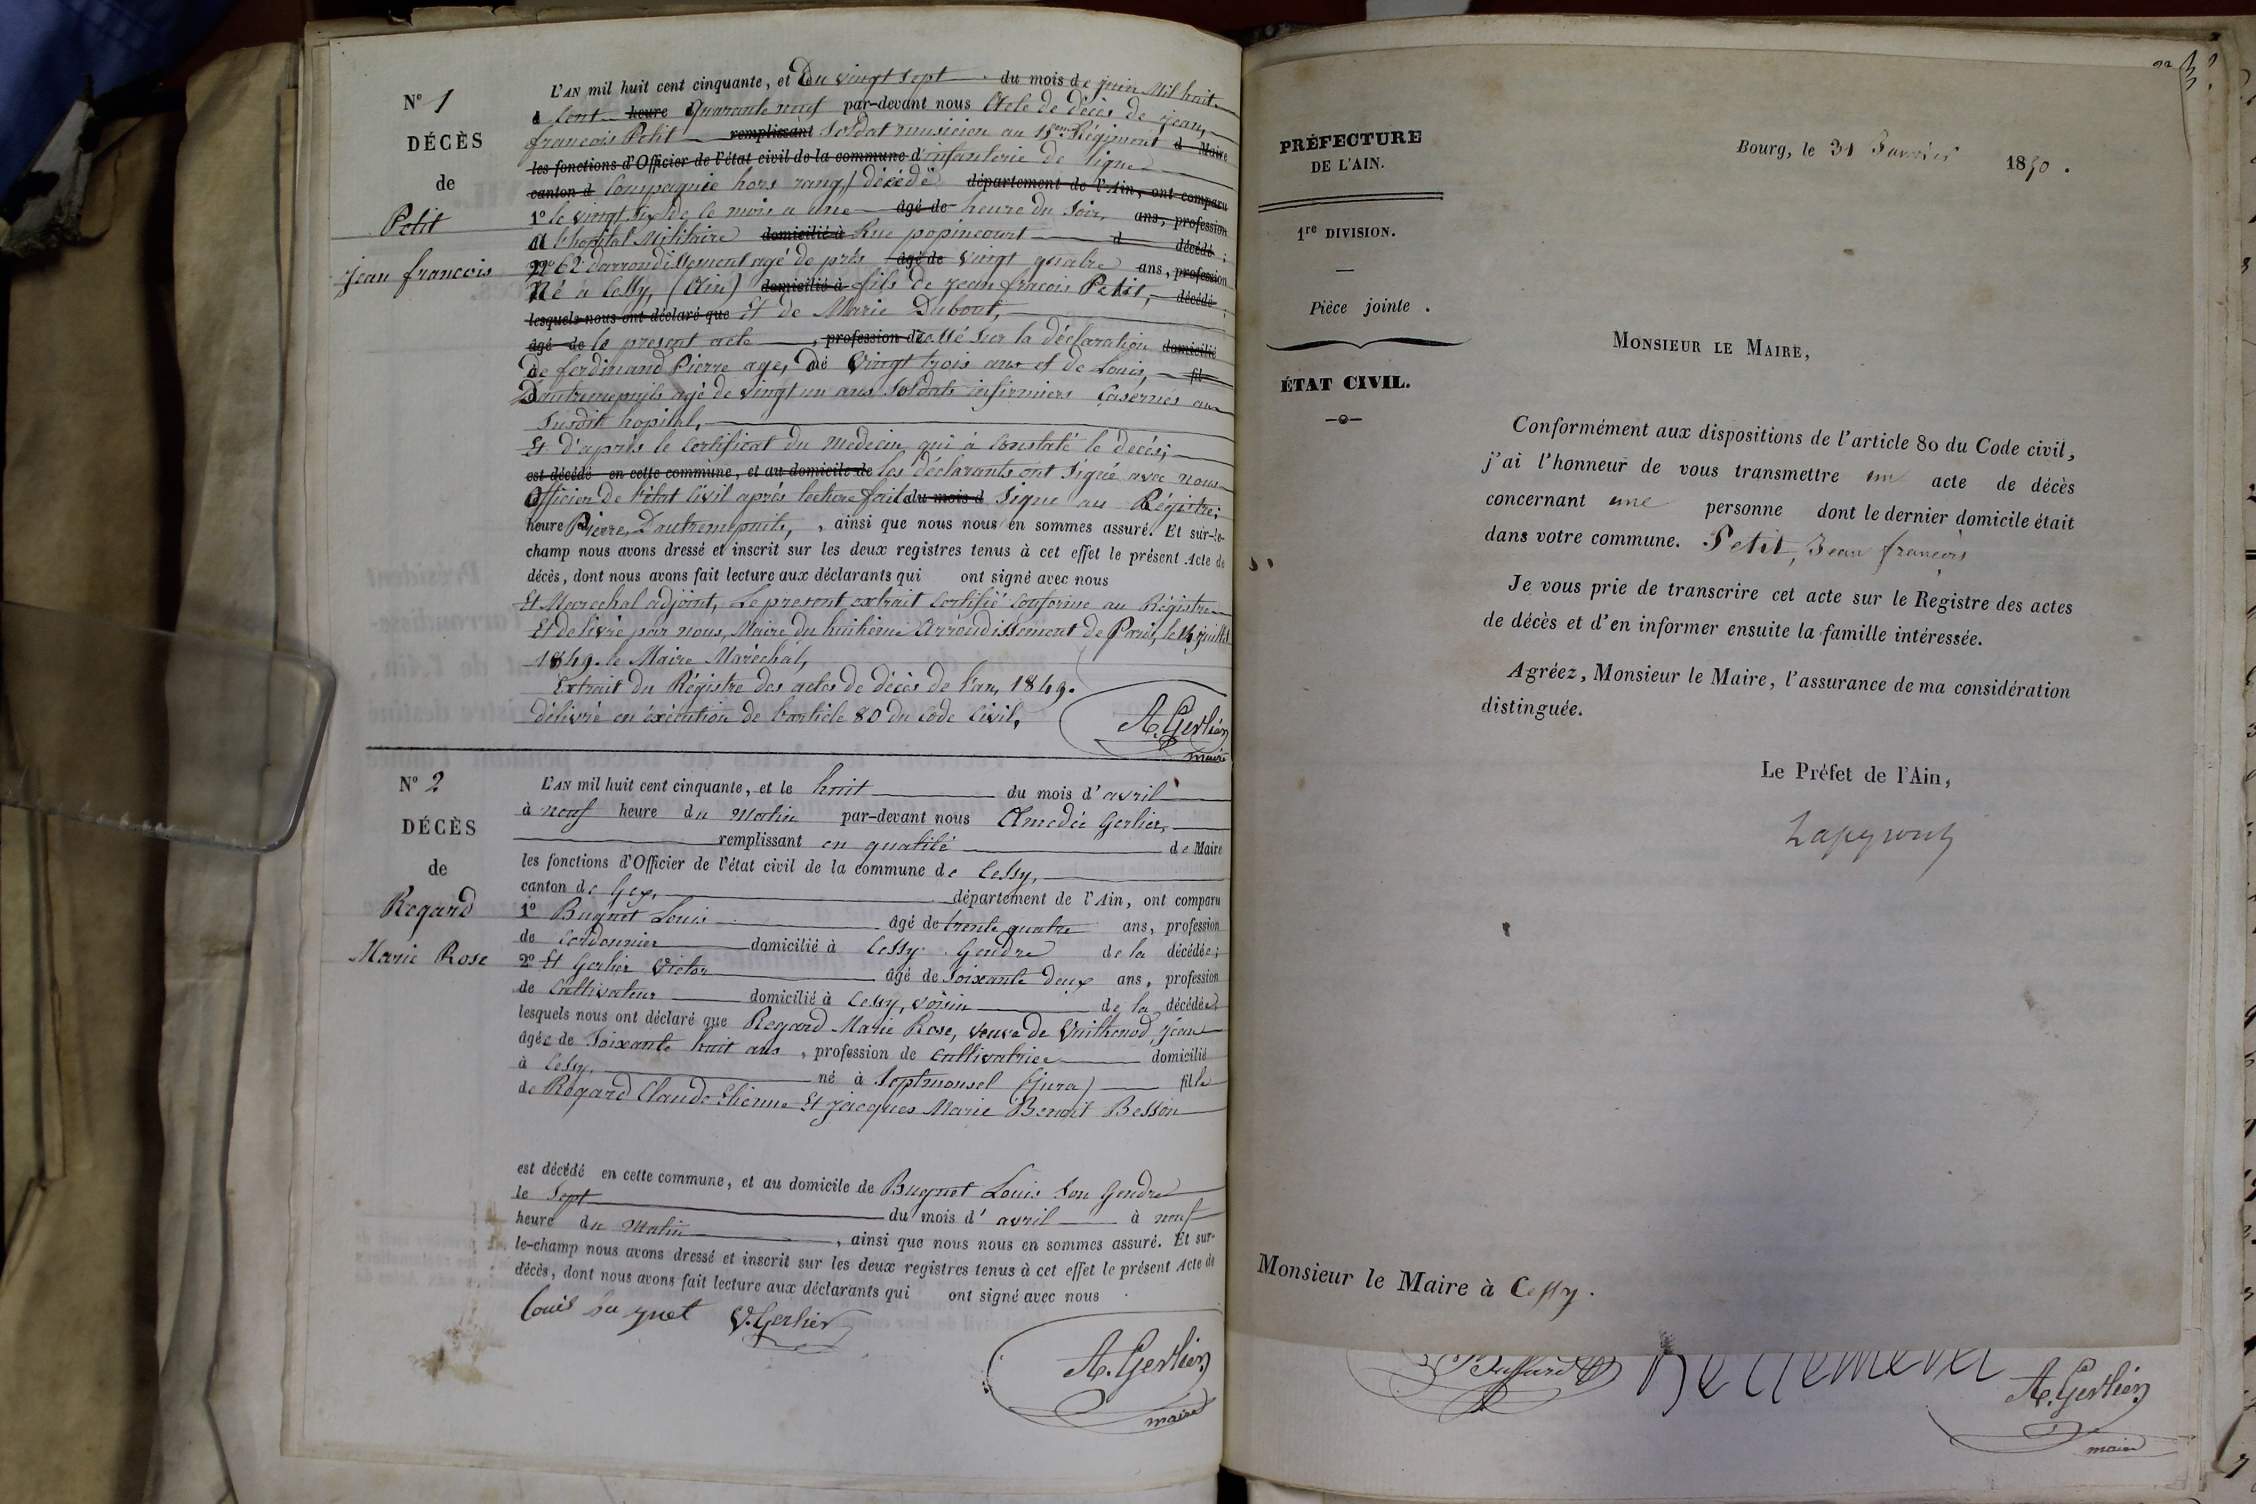 N° 1
DÉCÈS
de
Petit
jean francois
L'AN mil huit cent cinquante, et Du vingt sept du mois de juin Mil huit
Cent heure Quarante neuf par-devant nous Acte de décès de jean,
francois Petit remplissant Soldat musicien au 15eme Régiment d Maire
les fonctions d'Officier de l'état civil de la commune d'infanterie de ligne
canton d Compagnie hors rang, décédé département de l'Ain, ont comparu
1° le vingt six de ce mois a une âgé de heure du Soir, ans, profession
A l'hopital Militaire domicilié à Rue popincourt d décédé;
2° 62 d'arrondissement agé de près âgé de vingt quatre ans, profession
Né à Cessy, (Ain) domicilié à fils de jean francois Petit, décédé
lesquels nous ont déclaré que Et de Marie Dubout,
âgé de le present acte , profession de dressé Sur la déclaration domicilié
De ferdinand Pierre age, dé Vingt trois ans et de Louis, fil
Dautremepuits agé de vingt un ans Soldats infirmiers Casernés au
Susdit hopital,
Et d'après le Certificat du Medecin qui à Constaté le decès;
est décédé en cette commune, et au domicile de les déclarants ont Signé avec nous
Officier de l'état Civil après lecture faite du mois d Signé au Régistre;
heure d Pierre, Dautremepuits, , ainsi que nous nous en sommes assuré. Et sur-le-
champ nous avons dressé et inscrit sur les deux registres tenus à cet effet le présent Acte de
décès, dont nous avons fait lecture aux déclarants qui ont signé avec nous
Et Marechal adjoint, Le present extrait Certifié Conforme au Régistre
Et delivré par nous, Maire du huitième Arrondissement de Paris, le 14 juillet
1849. le Maire Maréchal,
Extrait du Régistre des actes de décès de l'an, 1849.
délivré en éxécution de l'article 80 du Code Civil,
A. Gerlier
maire
N° 2
DÉCÈS
de
Regard
Marie Rose
L'AN mil huit cent cinquante, et le huit du mois d'avril
à neuf heure du Matin par-devant nous Amedée Gerlier,
remplissant en qualité de Maire
les fonctions d'Officier de l'état civil de la commune de Cessy,
canton de Gex, département de l'Ain, ont comparu
1° Bugnet Louis âgé de trente quatre ans, profession
de Cordonnier domicilié à Cessy Gendre de la décédée;
2° Et Gerlier Victor âgé de Soixante deux ans, profession
de Cultivateur domicilié à Cessy, voisin de la décédée
lesquels nous ont déclaré que Regard Marie Rose, veuve de Vuilhenod, jean
âgée de Soixante huit ans , profession de Cultivatrice domicilié
à Cessy, né à Septmoncel (jura) fille
de Regard Claude Etienne Et jacques Marie Benoit Besson
est décédé en cette commune, et au domicile de Bugnet Louis Son Gendre
le Sept du mois d' avril à neuf
heure du Matin , ainsi que nous nous en sommes assuré. Et sur-
le-champ nous avons dressé et inscrit sur les deux registres tenus à cet effet le présent Acte de
décès, dont nous avons fait lecture aux déclarants qui ont signé avec nous
Louis bu gnet V. Gerlier
A. Gerlier
maire
PRÉFECTURE
DE L'AIN.
1re DIVISION.
Pièce jointe .
ÉTAT CIVIL.
Bourg, le 31 Janvier 1850.
MONSIEUR LE MAIRE,
Conformément aux dispositions de l'article 80 du Code civil,
j'ai l'honneur de vous transmettre un acte de décès
concernant une personne dont le dernier domicile était
dans votre commune. Petit, Jean francois
Je vous prie de transcrire cet acte sur le Registre des actes
de décès et d'en informer ensuite la famille intéressée.
Agréez, Monsieur le Maire, l'assurance de ma considération
distinguée.
Le Préfet de l'Ain,
Monsieur le Maire à Cessy.
A. Gerlier
maire